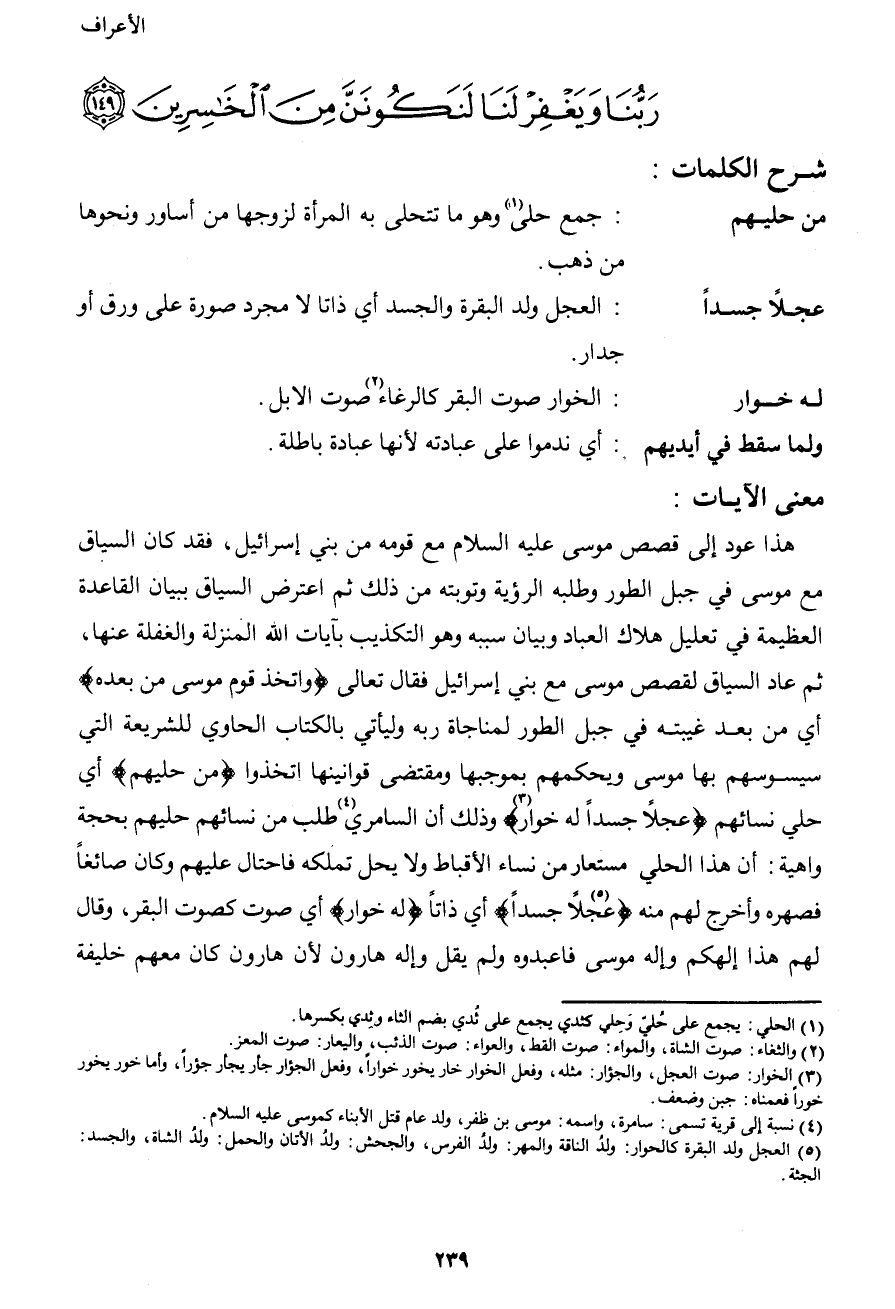 الأعراف
رَبُّنَا وَيَغْفِرْ لَنَا لَنَكُونَنَّ مِنَ ٱلْخَٰسِرِينَ ١٤٩
شرح الكلمات :
من حليهم : جمع حلى(١) وهو ما تتحلى به المرأة لزوجها من أساور ونحوها
من ذهب .
عجلاً جسداً : العجل ولد البقرة والجسد أي ذاتا لا مجرد صورة على ورق أو
جدار.
له خوار : الخوار صوت البقر كالرغاء(٢) صوت الابل .
ولما سقط في أيديهم : أي ندموا على عبادته لأنها عبادة باطلة .
معنى الآيات :
هذا عود إلى قصص موسى عليه السلام مع قومه من بني إسرائيل، فقد كان السياق
مع موسى في جبل الطور وطلبه الرؤية وتوبته من ذلك ثم اعترض السياق ببيان القاعدة
العظيمة في تعليل هلاك العباد وبيان سببه وهو التكذيب بآيات الله المنزلة والغفلة عنها،
ثم عاد السياق لقصص موسى مع بني إسرائيل فقال تعالى ﴿واتخذ قوم موسى من بعده﴾
أي من بعد غيبته في جبل الطور لمناجاة ربه وليأتي بالكتاب الحاوي للشريعة التي
سيسوسهم بها موسى ويحكمهم بموجبها ومقتضى قوانينها اتخذوا ﴿من حليهم﴾ أي
حلي نسائهم ﴿عجلاً جسداً له خوار(٣)﴾ وذلك أن السامري(٤) طلب من نسائهم حليهم بحجة
واهية : أن هذا الحلي مستعار من نساء الأقباط ولا يحل تملكه فاحتال عليهم وكان صائغاً
فصهره وأخرج لهم منه ﴿عجلاً(٥) جسداً﴾ أي ذاتاً ﴿له خوار﴾ أي صوت كصوت البقر، وقال
لهم هذا إلهكم وإله موسى فاعبدوه ولم يقل وإله هارون لأن هارون كان معهم خليفة
(١) الحلي : يجمع على حُليّ وَحِلي كثدي يجمع على ثُدي بضم الثاء وثِدي بكسرها.
(٢) والثغاء: صوت الشاة، والمواء: صوت القط، والعواء: صوت الذئب، واليعار: صوت المعز.
(٣) الخوار: صوت العجل، والجؤار: مثله، وفعل الخوار خار يخور خواراً، وفعل الجؤار جأر يجأر جؤراً، وأما خور يخور
خوراً فعمناه : جبن وضعف.
(٤) نسبة إلى قرية تسمى : سامرة، واسمه: موسى بن ظفر، ولد عام قتل الأبناء كموسى عليه السلام.
(٥) العجل ولد البقرة كالحوار: ولدُ الناقة والمهر: ولدُ الفرس، والجحش: ولدُ الأتان والحمل: ولدُ الشاة، والجسد:
الجثة .
٢٣٩